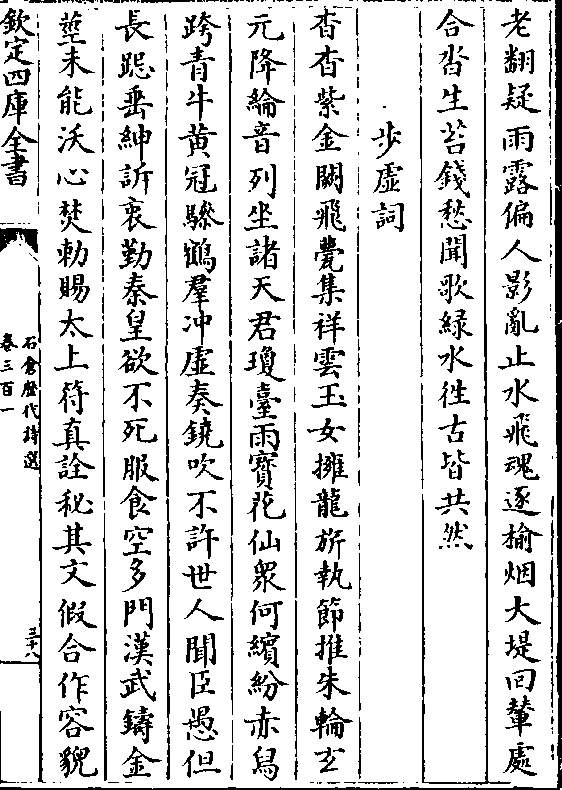 老翻疑雨露偏人影亂止水飛魂逐榆烟大堤回輦處
合沓生苔錢愁聞歌緑水徃古皆共然
步虛詞
杳杳紫金闕飛甍集祥雲玉女擁龍旂執節推朱輪玄
元降綸音列坐諸天君瓊臺雨寳花仙衆何繽紛赤舄
跨青牛黄冠驂鶴羣冲虛奏鐃吹不許世人聞臣愚但
長跽垂紳訴衷勤秦皇欲不死服食空多門漢武鑄金
莖未能沃心焚勅賜太上符真詮秘其文假合作容貌
欽定四庫全書
石倉歴代詩選
卷三百一
三十八